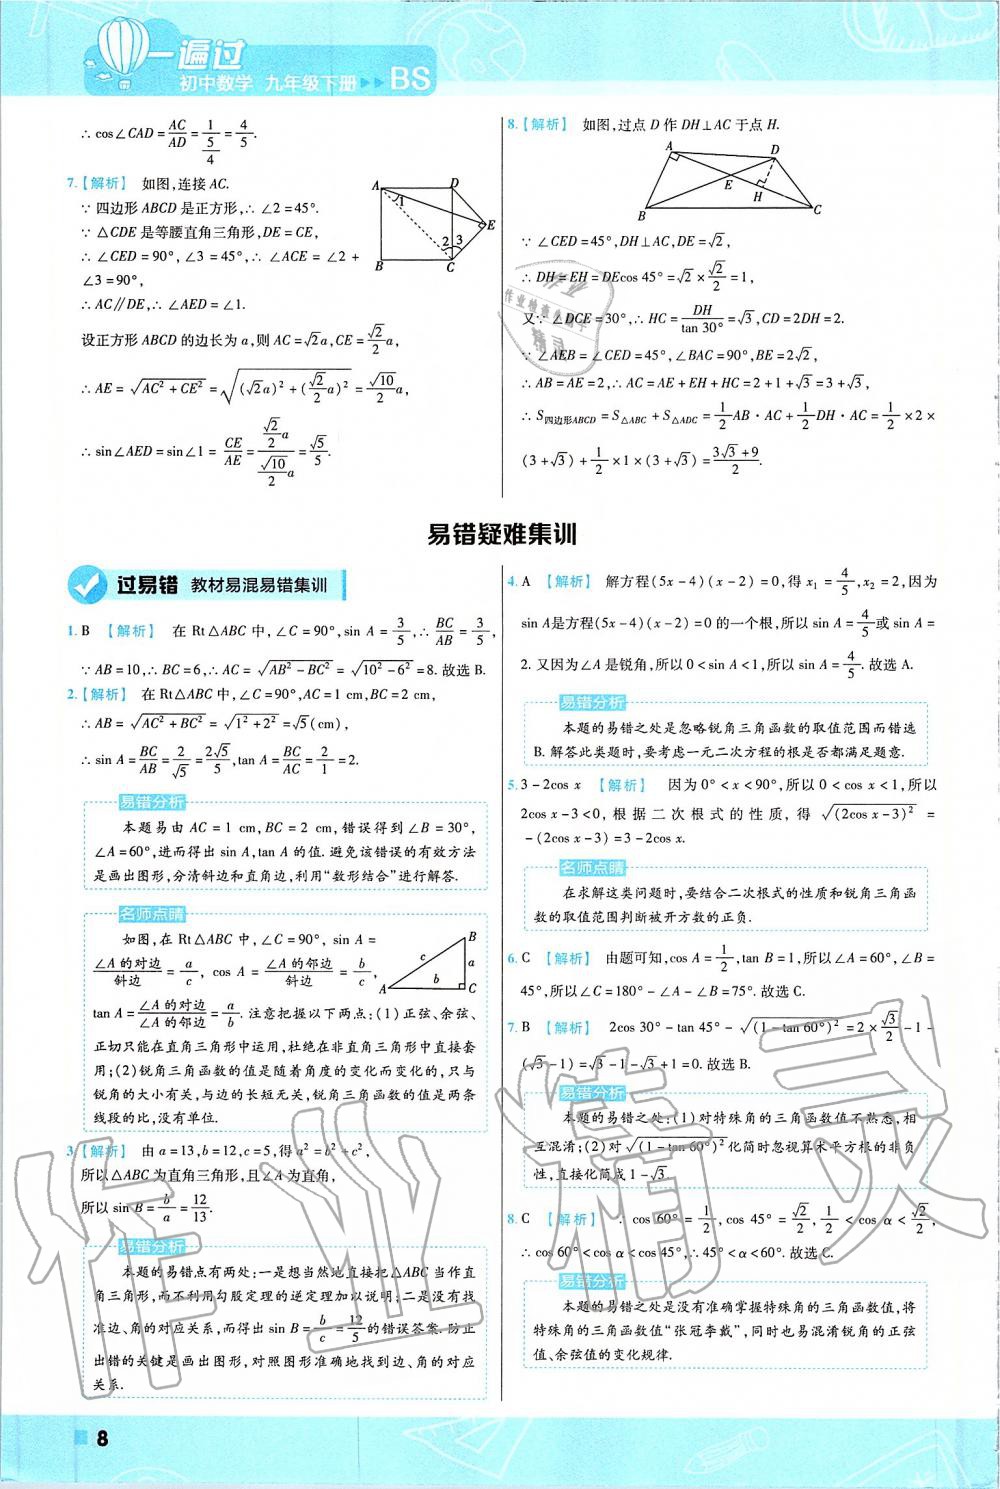 一遍过
初中数学 九年级下册 BS
∴ cos∠CAD = AC/AD = 1/(5/4) = 4/5.
7.【解析】 如图,连接 AC.
∵ 四边形 ABCD 是正方形,∴ ∠2 = 45°.
∵ △CDE 是等腰直角三角形,DE = CE,
∴ ∠CED = 90°,∠3 = 45°,∴ ∠ACE = ∠2 +
∠3 = 90°,
∴ AC∥DE,∴ ∠AED = ∠1.
设正方形 ABCD 的边长为 a,则 AC = √2a,CE = (√2/2)a,
∴ AE = √(AC² + CE²) = √((√2a)² + ((√2/2)a)²) = (√10/2)a,
∴ sin∠AED = sin∠1 = CE/AE = ((√2/2)a)/((√10/2)a) = √5/5.
A D 1 E 2 3 B C
8.【解析】 如图,过点 D 作 DH⊥AC 于点 H.
A D E H B C
∵ ∠CED = 45°,DH⊥AC,DE = √2,
∴ DH = EH = DEcos 45° = √2 × √2/2 = 1,
又∵ ∠DCE = 30°,∴ HC = DH/tan 30° = √3,CD = 2DH = 2.
∵ ∠AEB = ∠CED = 45°,∠BAC = 90°,BE = 2√2,
∴ AB = AE = 2,∴ AC = AE + EH + HC = 2 + 1 + √3 = 3 + √3,
∴ S四边形ABCD = S△ABC + S△ADC = 1/2 AB · AC + 1/2 DH · AC = 1/2 × 2 ×
(3 + √3) + 1/2 × 1 × (3 + √3) = (3√3 + 9)/2.
易错疑难集训
过易错 教材易混易错集训
1. B 【解析】 在 Rt△ABC 中,∠C = 90°,sin A = 3/5,∴ BC/AB = 3/5,
∵ AB = 10,∴ BC = 6,∴ AC = √(AB² − BC²) = √(10² − 6²) = 8. 故选 B.
2.【解析】 在 Rt△ABC 中,∠C = 90°,AC = 1 cm,BC = 2 cm,
∴ AB = √(AC² + BC²) = √(1² + 2²) = √5(cm),
∴ sin A = BC/AB = 2/√5 = 2√5/5,tan A = BC/AC = 2/1 = 2.
易错分析
本题易由 AC = 1 cm,BC = 2 cm,错误得到∠B = 30°,
∠A = 60°,进而得出 sin A,tan A 的值. 避免该错误的有效方法
是画出图形,分清斜边和直角边,利用“数形结合”进行解答.
名师点睛
如图,在 Rt△ABC 中,∠C = 90°, sin A =
∠A 的对边/斜边 = a/c, cos A = ∠A 的邻边/斜边 = b/c,
tan A = ∠A 的对边/∠A 的邻边 = a/b. 注意把握以下两点:(1)正弦、余弦、
正切只能在直角三角形中运用,杜绝在非直角三角形中直接套
用;(2)锐角三角函数的值是随着角度的变化而变化的,只与
锐角的大小有关,与边的长短无关,锐角三角函数的值是两条
线段的比,没有单位.
B c a A b C
3.【解析】 由 a = 13,b = 12,c = 5,得 a² = b² + c²,
所以△ABC 为直角三角形,且∠A 为直角,
所以 sin B = b/a = 12/13.
易错分析
本题的易错点有两处:一是想当然地直接把△ABC 当作直
角三角形,而不利用勾股定理的逆定理加以说明;二是没有找
准边、角的对应关系,而得出 sin B = b/c = 12/5 的错误答案. 防止
出错的关键是画出图形,对照图形准确地找到边、角的对应
关系.
4. A 【解析】 解方程(5x − 4)(x − 2) = 0,得 x₁ = 4/5,x₂ = 2,因为
sin A是方程(5x − 4)(x − 2) = 0 的一个根,所以 sin A = 4/5 或 sin A =
2. 又因为∠A 是锐角,所以 0 < sin A < 1,所以 sin A = 4/5. 故选 A.
易错分析
本题的易错之处是忽略锐角三角函数的取值范围而错选
B. 解答此类题时,要考虑一元二次方程的根是否都满足题意.
5. 3 − 2cos x 【解析】 因为 0° < x < 90°,所以 0 < cos x < 1,所以
2cos x − 3 < 0, 根 据 二 次 根 式 的 性 质, 得 √((2cos x − 3)²) =
−(2cos x − 3) = 3 − 2cos x.
名师点睛
在求解这类问题时,要结合二次根式的性质和锐角三角函
数的取值范围判断被开方数的正负.
6. C 【解析】 由题可知,cos A = 1/2,tan B = 1,所以∠A = 60°,∠B =
45°,所以∠C = 180° − ∠A − ∠B = 75°. 故选 C.
7. B 【解析】 2cos 30° − tan 45° − √((1 − tan 60°)²) = 2 × √3/2 − 1 −
(√3 − 1) = √3 − 1 − √3 + 1 = 0. 故选 B.
易错分析
本题的易错之处:(1)对特殊角的三角函数值不熟悉,相
互混淆;(2)对√((1 − tan 60°)²)化简时忽视算术平方根的非负
性,直接化简成 1 − √3.
8. C 【解析】 ∵ cos 60° = 1/2,cos 45° = √2/2,1/2 < cos α < √2/2,
∴ cos 60° < cos α < cos 45°,∴ 45° < α < 60°. 故选 C.
易错分析
本题的易错之处是没有准确掌握特殊角的三角函数值,将
特殊角的三角函数值“张冠李戴”,同时也易混淆锐角的正弦
值、余弦值的变化规律.
8
作业精灵